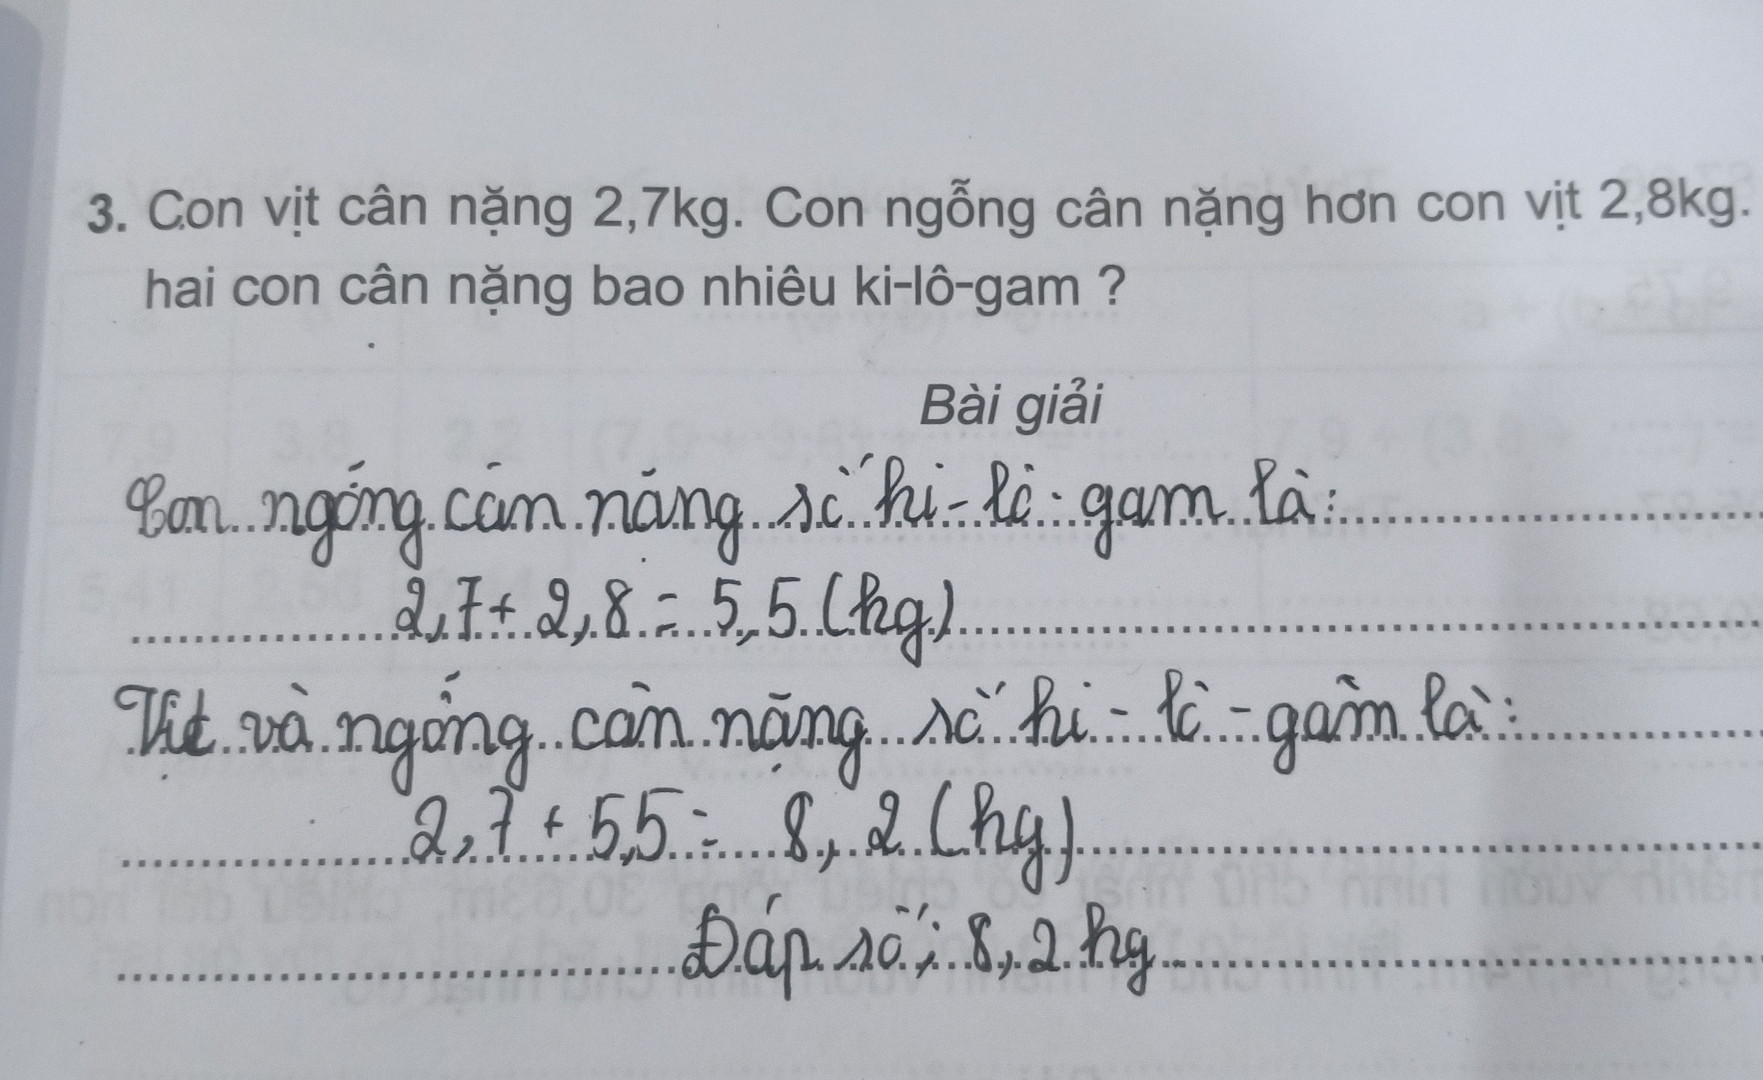 3. Con vịt cân nặng 2,7kg. Con ngỗng cân nặng hơn con vịt 2,8kg.
hai con cân nặng bao nhiêu ki-lô-gam ?
Bài giải
Con ngỗng cân nặng số ki-lô-gam là:
2,7 + 2,8 = 5,5 (kg)
Vịt và ngỗng cân nặng số ki-lô-gam là:
2,7 + 5,5 = 8,2 (kg)
Đáp số; 8,2 kg